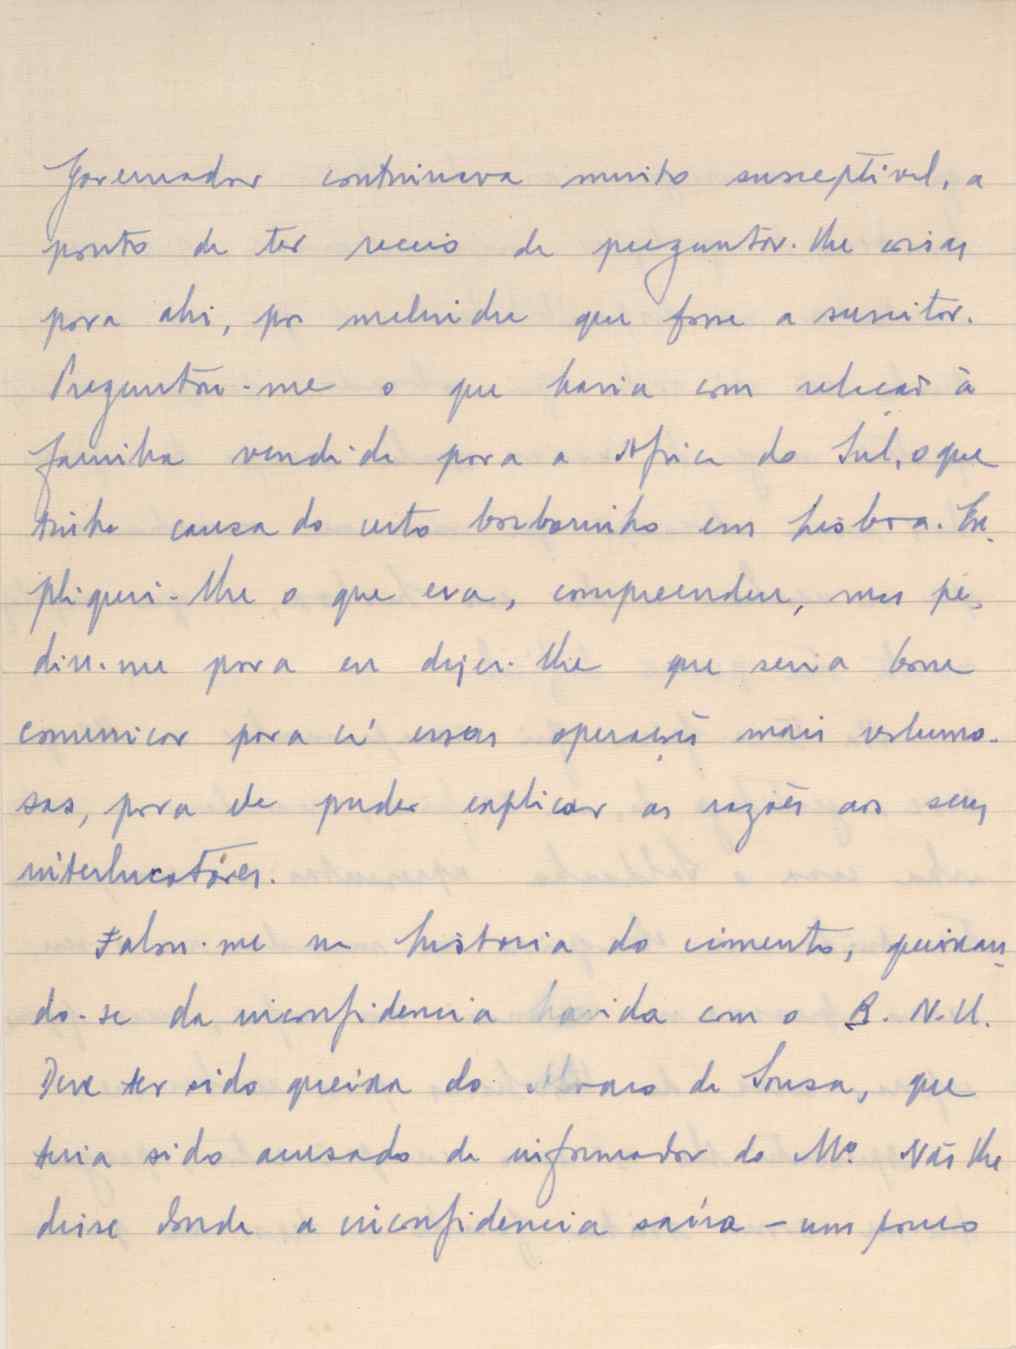 Governador continuava muito susceptivel, a
ponto de ter receio de preguntar-lhe coisas
para ahi, por melindre que fosse a suscitar.
Preguntou-me o que havia com relação à
farinha vendida para a Africa do Sul, o que
tinha causado certo borborinho em Lisboa. Ex-
pliquei-lhe o que era, compreendeu, mas pe-
diu-me para eu dizer-lhe que seria bom
comunicar para cá essas operações mais volumo-
sas, para ele puder explicar as razões aos seus
interlucotóres.
Falou-me na historia do cimento, queixan-
do-se da inconfidencia havida com o B. N. U.
Deve ter sido queixa do Alvaro de Sousa, que
teria sido acusado de informador do Mº. Não lhe
disse donde a inconfidencia saíra - um pouco